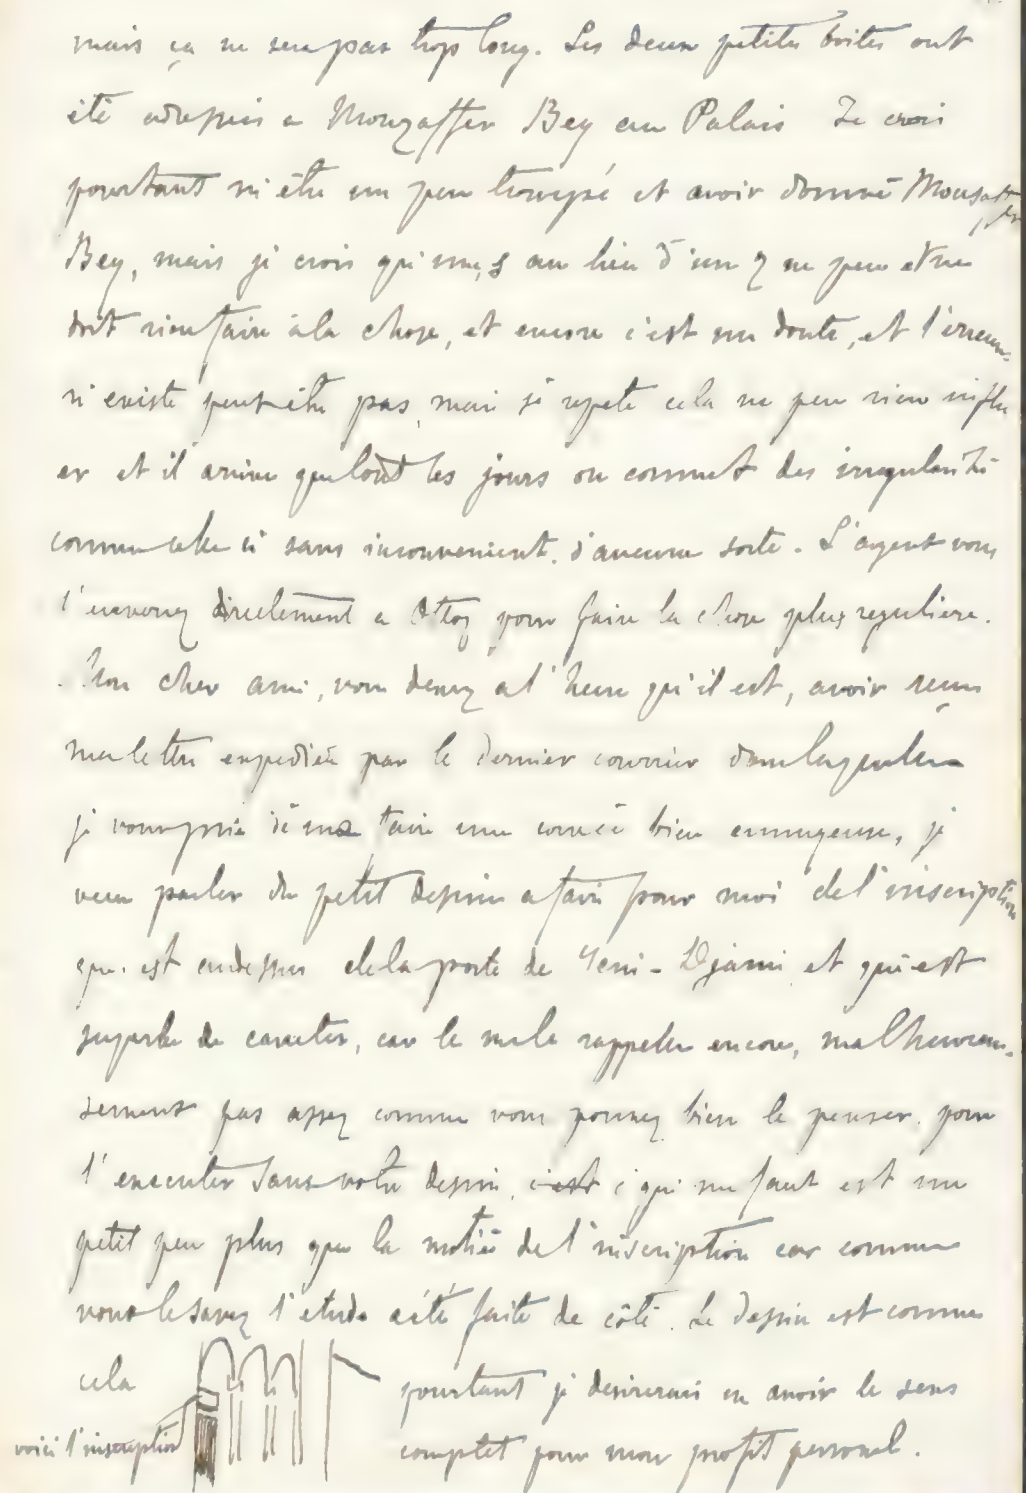 mais ça ne sera pas trop long. Les deux petites boites ont
été adressées a Mouzaffer Bey au Palais Je crois
pourtant m'être un peu trompé et avoir donné Mousaffer
Bey, mais je crois qu'une s au lieu d'un z ne peu et ne
doit rien faire à la chose, et encore c'est un doute, et l'erreur
n'existe peut être pas, mais je repete cela ne peu rien influ
er et il arrive que tout les jours on commet des irregularité
comme celle ci sans inconvenient d'aucune sorte. L'argent vous
l'enverrez directement a pour faire la chose plus reguliere.
Mon cher ami, vous devez a l'heure qu'il est, avoir reçu
ma lettre expediée par le dernier courrier dans laquelle
je vous prie de me faire une corvée bien ennuyeuse, je
veux parler du petit dessin a faire pour moi de l'inscription
qui est au dessus de la porte de Yeni-Djami et qui est
superbe de caracter, car je me la rappelle encore, malheureu-
sement pas assez comme vous pouvez bien le penser pour
l'executer sans votre dessin, c'est ce qui me faut est un
petit peu plus que la moitié de l'inscription car comme
vous le savez l'etude a été faite de côté. Le dessin est comme
cela pourtant je desirerais en avoir le sens
voici l'inscription complet pour mon profit personel.